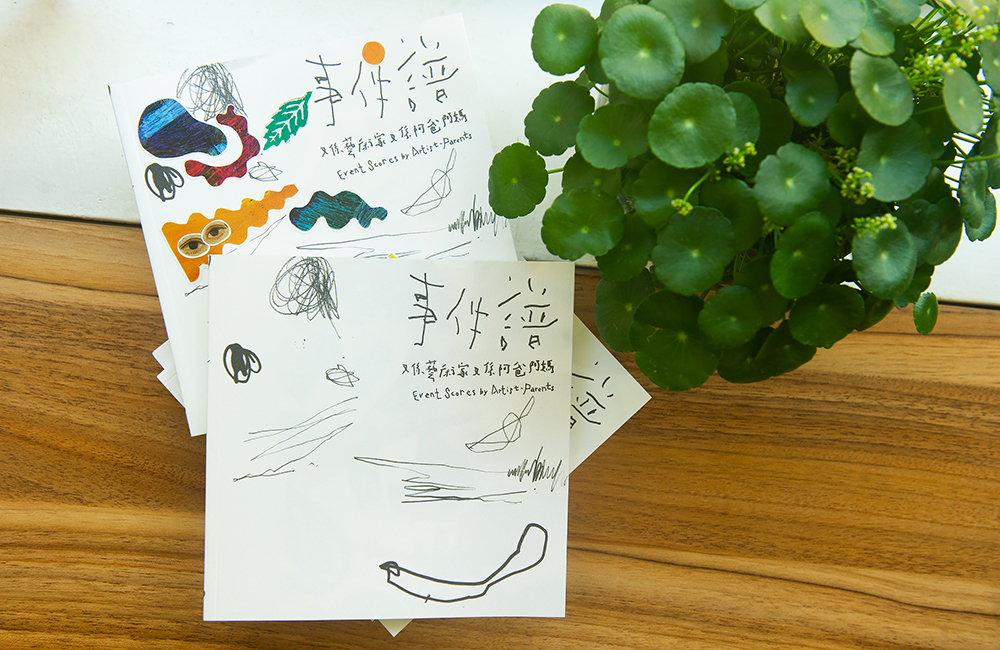 事件譜
又係藝術家又係阿爸阿媽
Event Scores by Artist-Parents
事件譜
又係藝術家又係阿爸阿媽
Event Scores by Artist-Parents